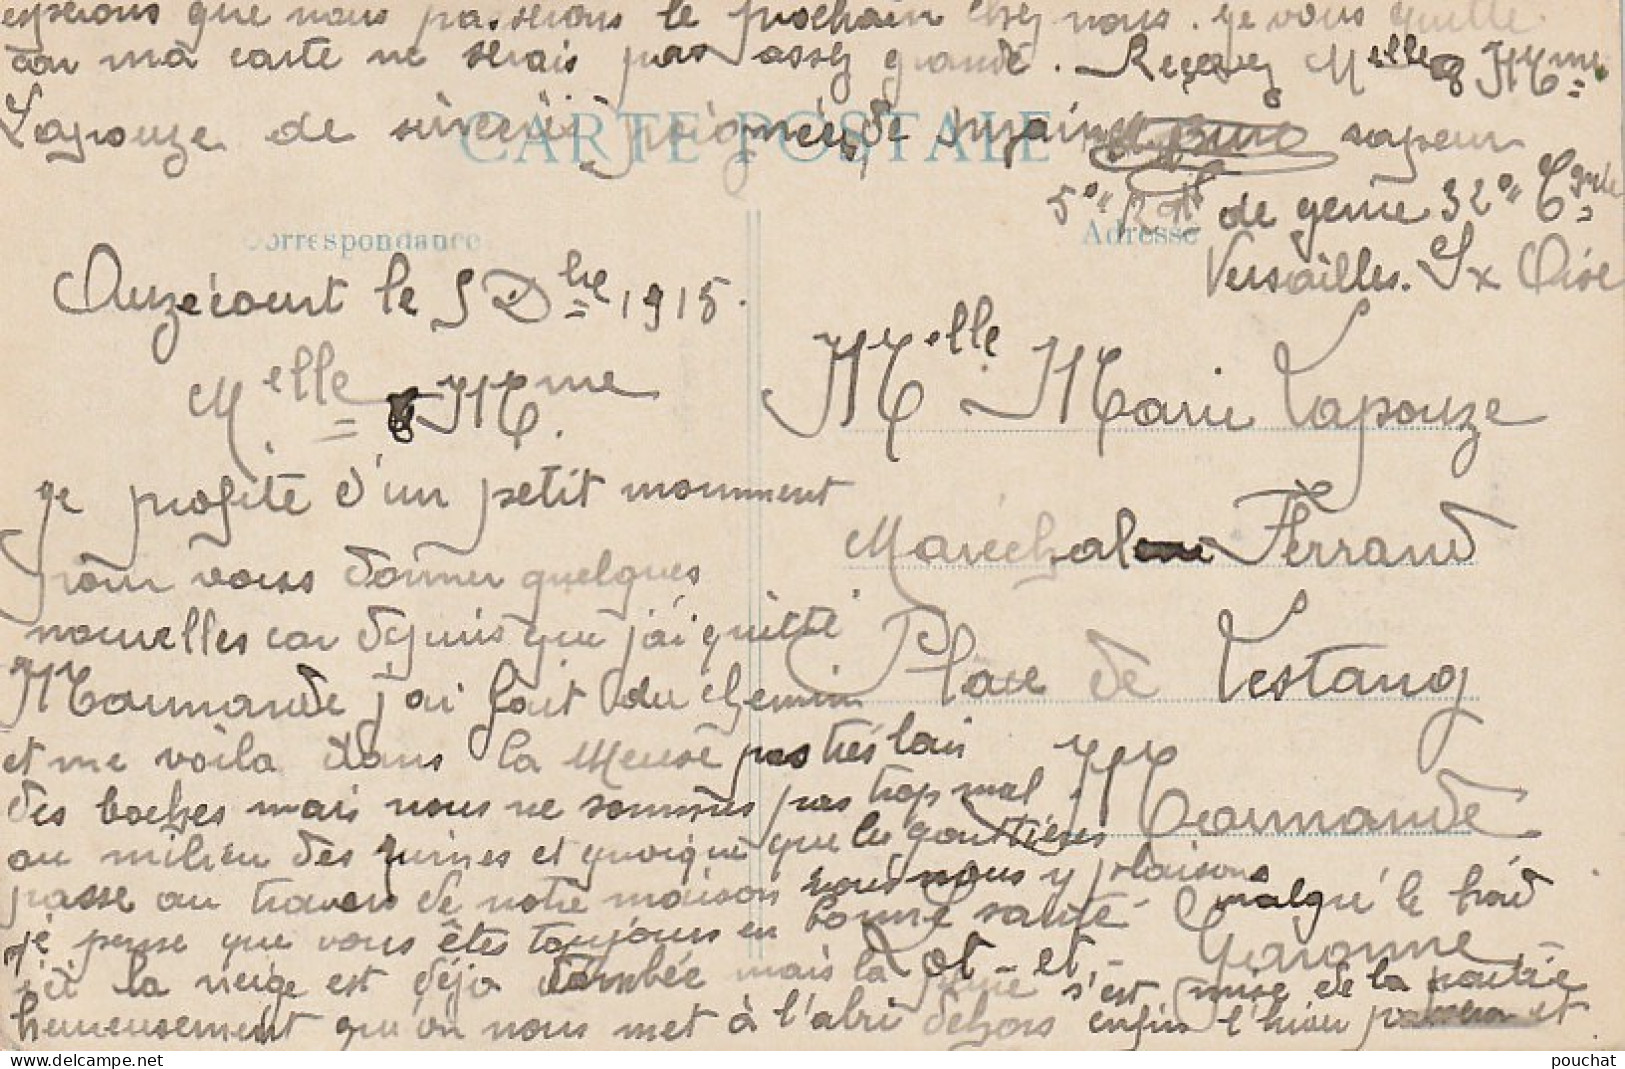 Auzécourt le 5 Dbre 1915.
Melle & Mme.
je profite d'un petit momment
pour vous donner quelques
nouvelles car depuis que j'ai quitté
Marmande j'ai fait du chemin
et me voila dans la Meuse pas très loin
des boches mais nous ne sommes pas trop mal
au milieu des ruines et quoique que les gouttières
passe au travers de notre maison nous nous y plaisons
je pense que vous êtes toujours en bonne santé malgré le froid
ici la neige est déjà tombée mais la pluie s'est mise de la partie
heureusement qu'on nous met à l'abri dehors enfin l'hiver passera et
espérons que nous passerons le prochain chez nous. je vous quitte
car ma carte ne serais pas assez grande. Recevez Melle & Mme
Lapouze de sincères poignées de mains sapeur
5e Rgt de genie 32e Cgnie
Versailles. S x Oise
CARTE POSTALE
Correspondance
Adresse
Melle Marie Lapouze
Maréchal Ferrand
Place de Lestang
Marmande
Lot-et-Garonne
pouchat